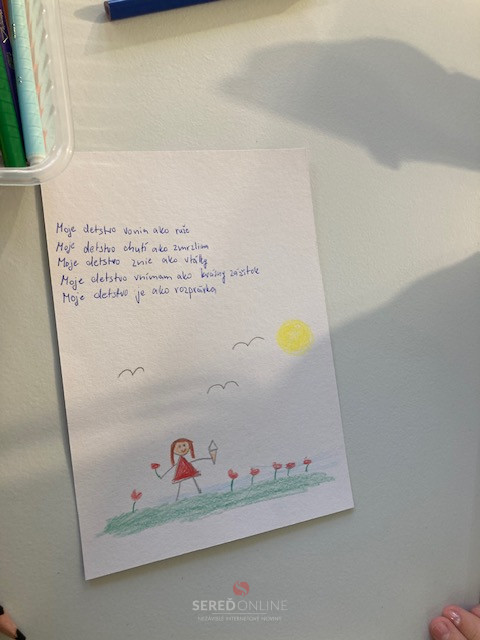 Moje detstvo vonia ako ruže
Moje detstvo chutí ako zmrzlina
Moje detstvo znie ako vtáčiky
Moje detstvo vnímam ako krásny zážitok
Moje detstvo je ako rozprávka
SEREĎONLINE
NEZÁVISLÉ INTERNETOVÉ NOVINY